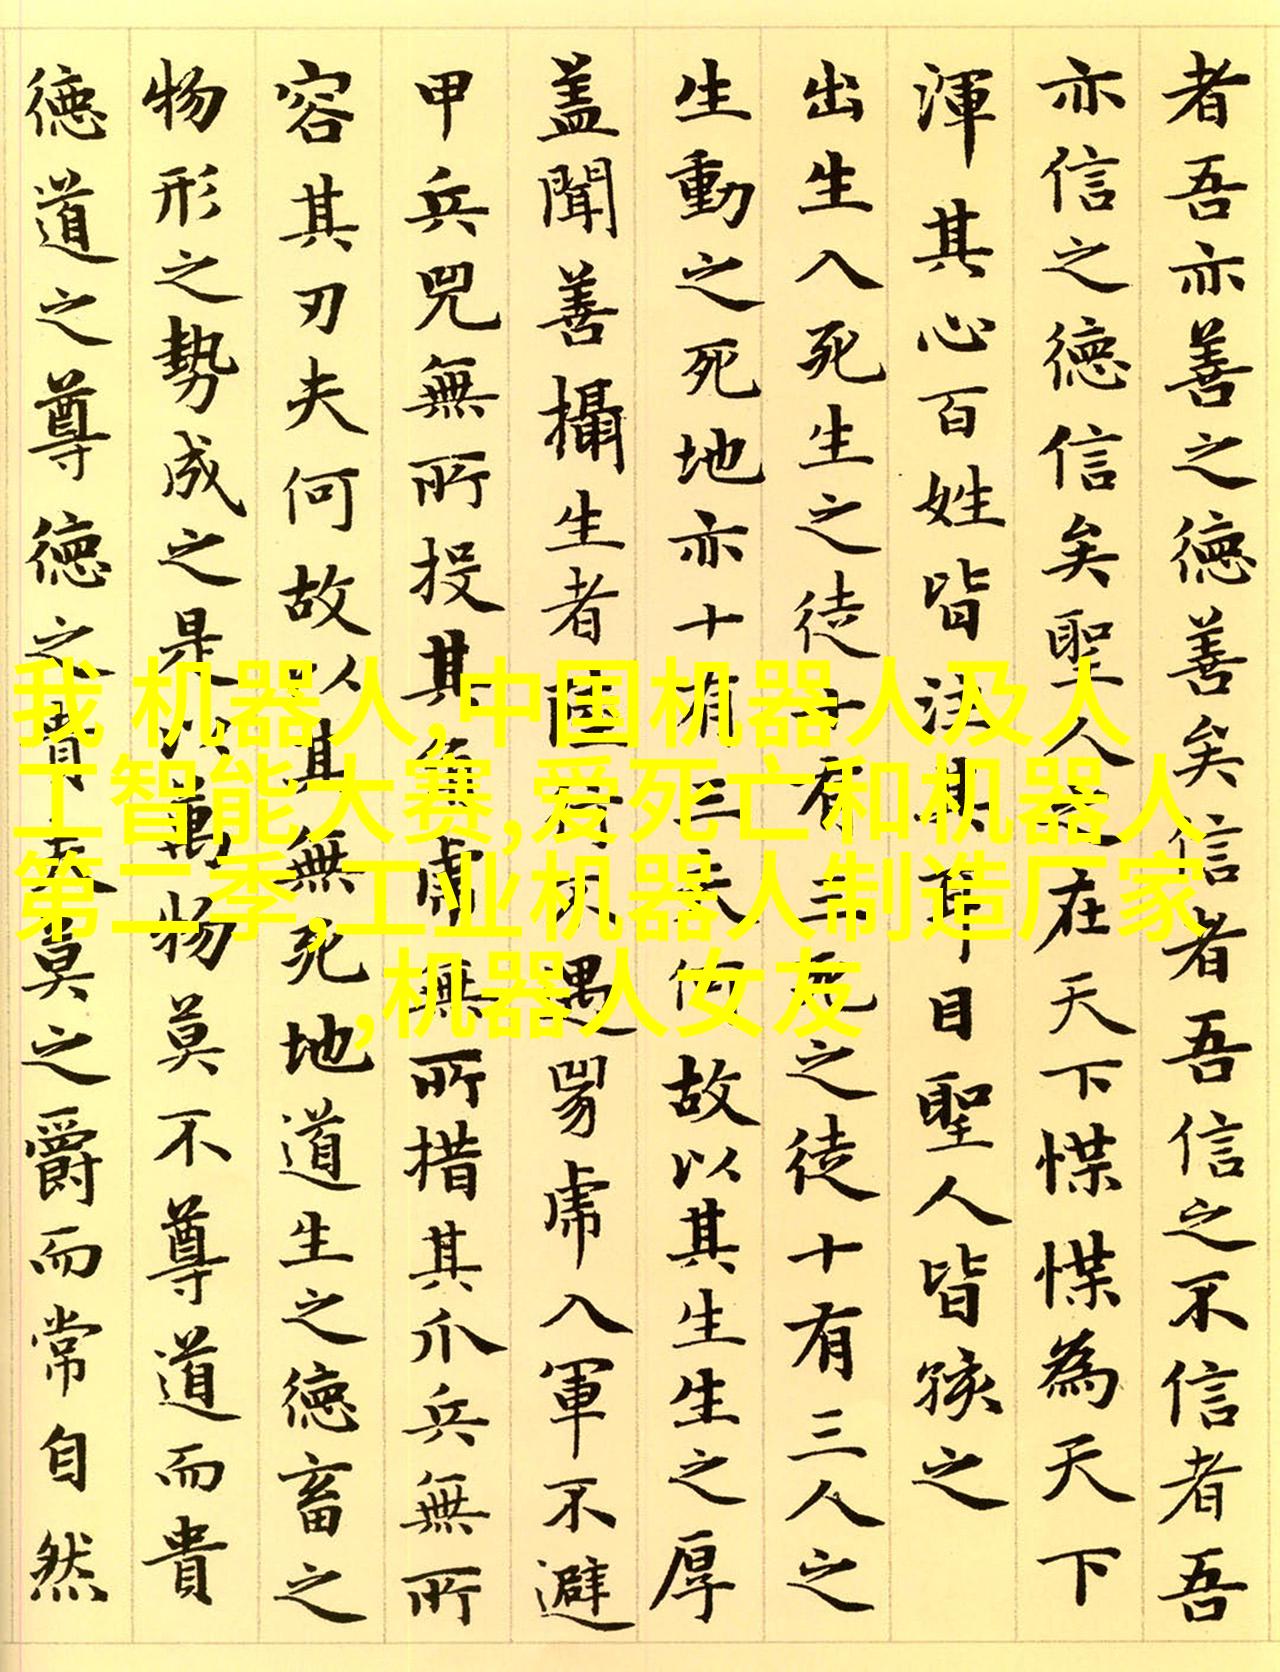 者吾亦善之德善矣信者吾信之不信者吾
亦信之德信矣聖人之在天下惵惵為天下
渾其心百姓皆注其耳目聖人皆孩之
出生入死生之徒十有三死之徒十有三人之
生動之死地亦十有三夫何故以其生生之厚
蓋聞善攝生者陸行不遇兕虎入軍不避
甲兵兕無所投其角虎無所措其爪兵無所
容其刃夫何故以其無死地道生之德畜之
物形之勢成之是以萬物莫不尊道而貴
德道之尊德之貴夫莫之爵而常自然
我 机器人,中国机器人及人
工智能大赛,爱死亡和机器人
第二季,工业机器人制造厂家
,机器人女友